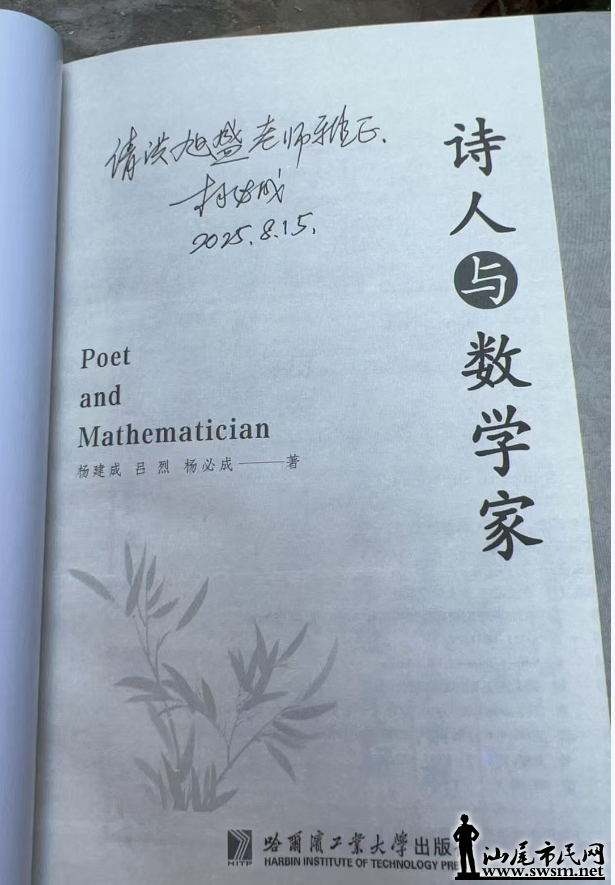 请洪旭盛老师雅正.
杨必成
2025.8.15.
诗人与数学家
Poet
and
Mathematician
杨建成 吕烈 杨必成——著
HITP
哈尔滨工业大学出版
HARBIN INSTITUTE OF TECHNOLOGY PRE
汕尾市民网
www.swsm.net